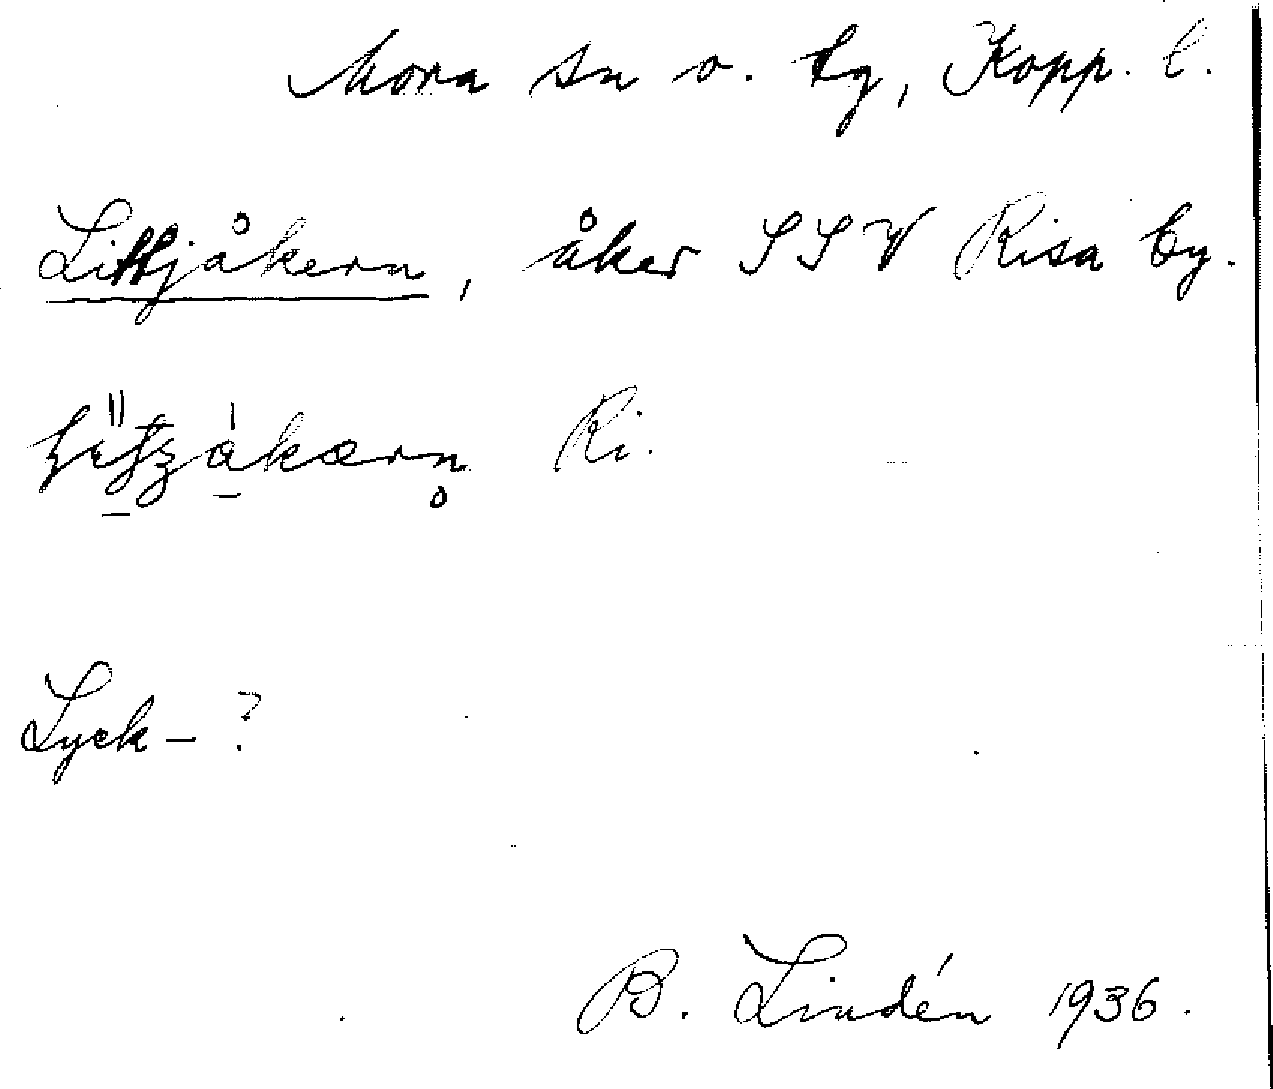 Mora sn o. tg, Kopp. l.
Littjåkern, åker SSV Risa by.
Ri.
Lyck- ?
B. Lindén 1936.